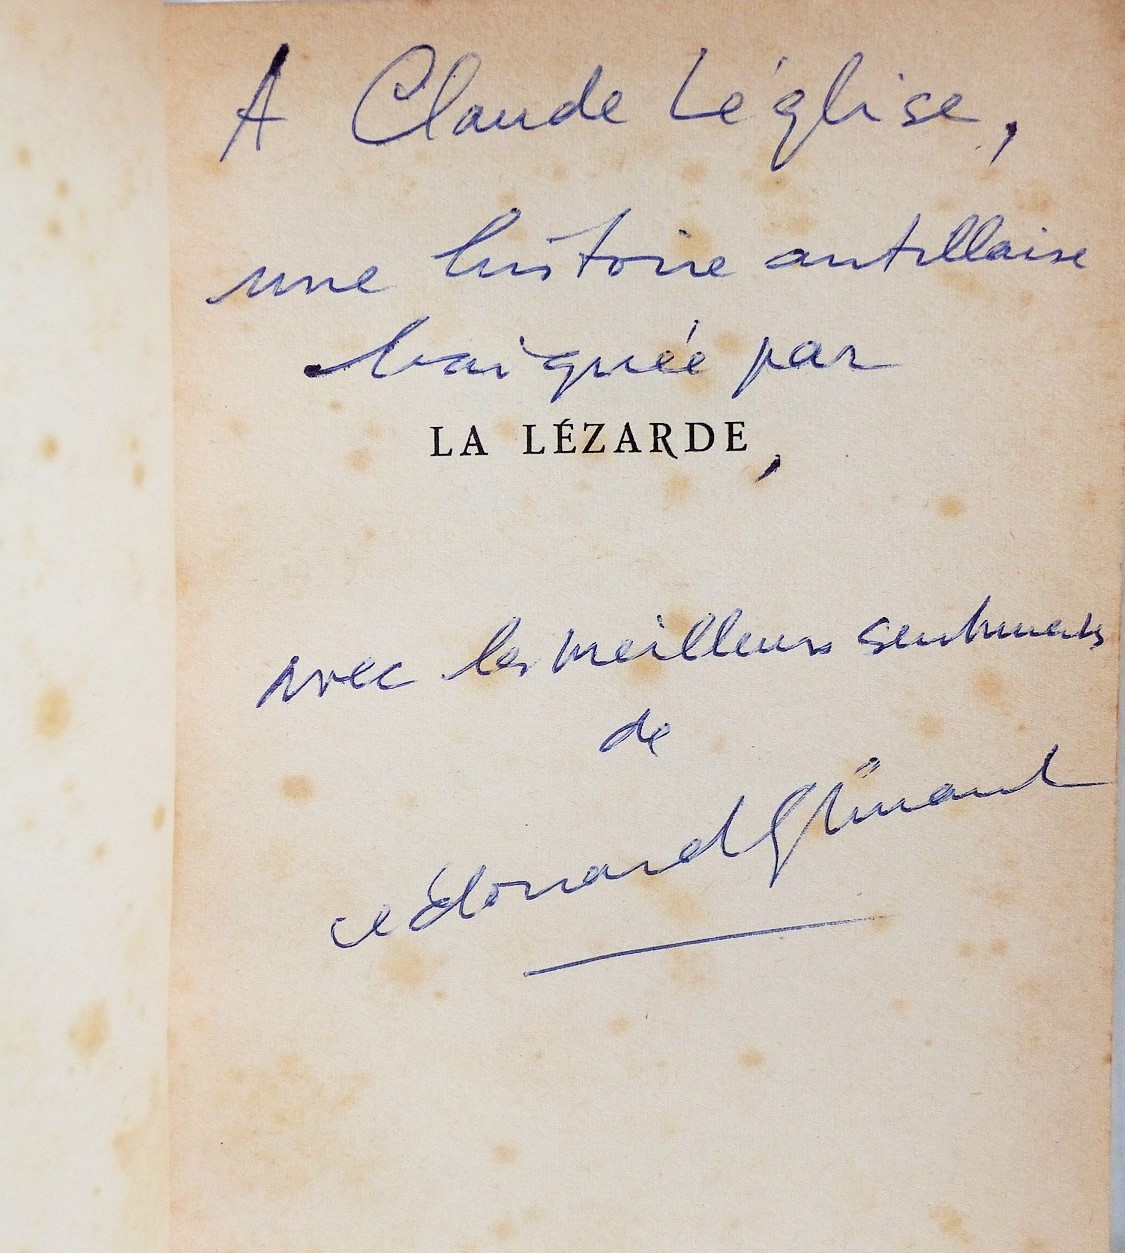 A Claude Léglise,
une histoire antillaise
baignée par
LA LÉZARDE,
avec les meilleurs sentiments
de
edouard glissant